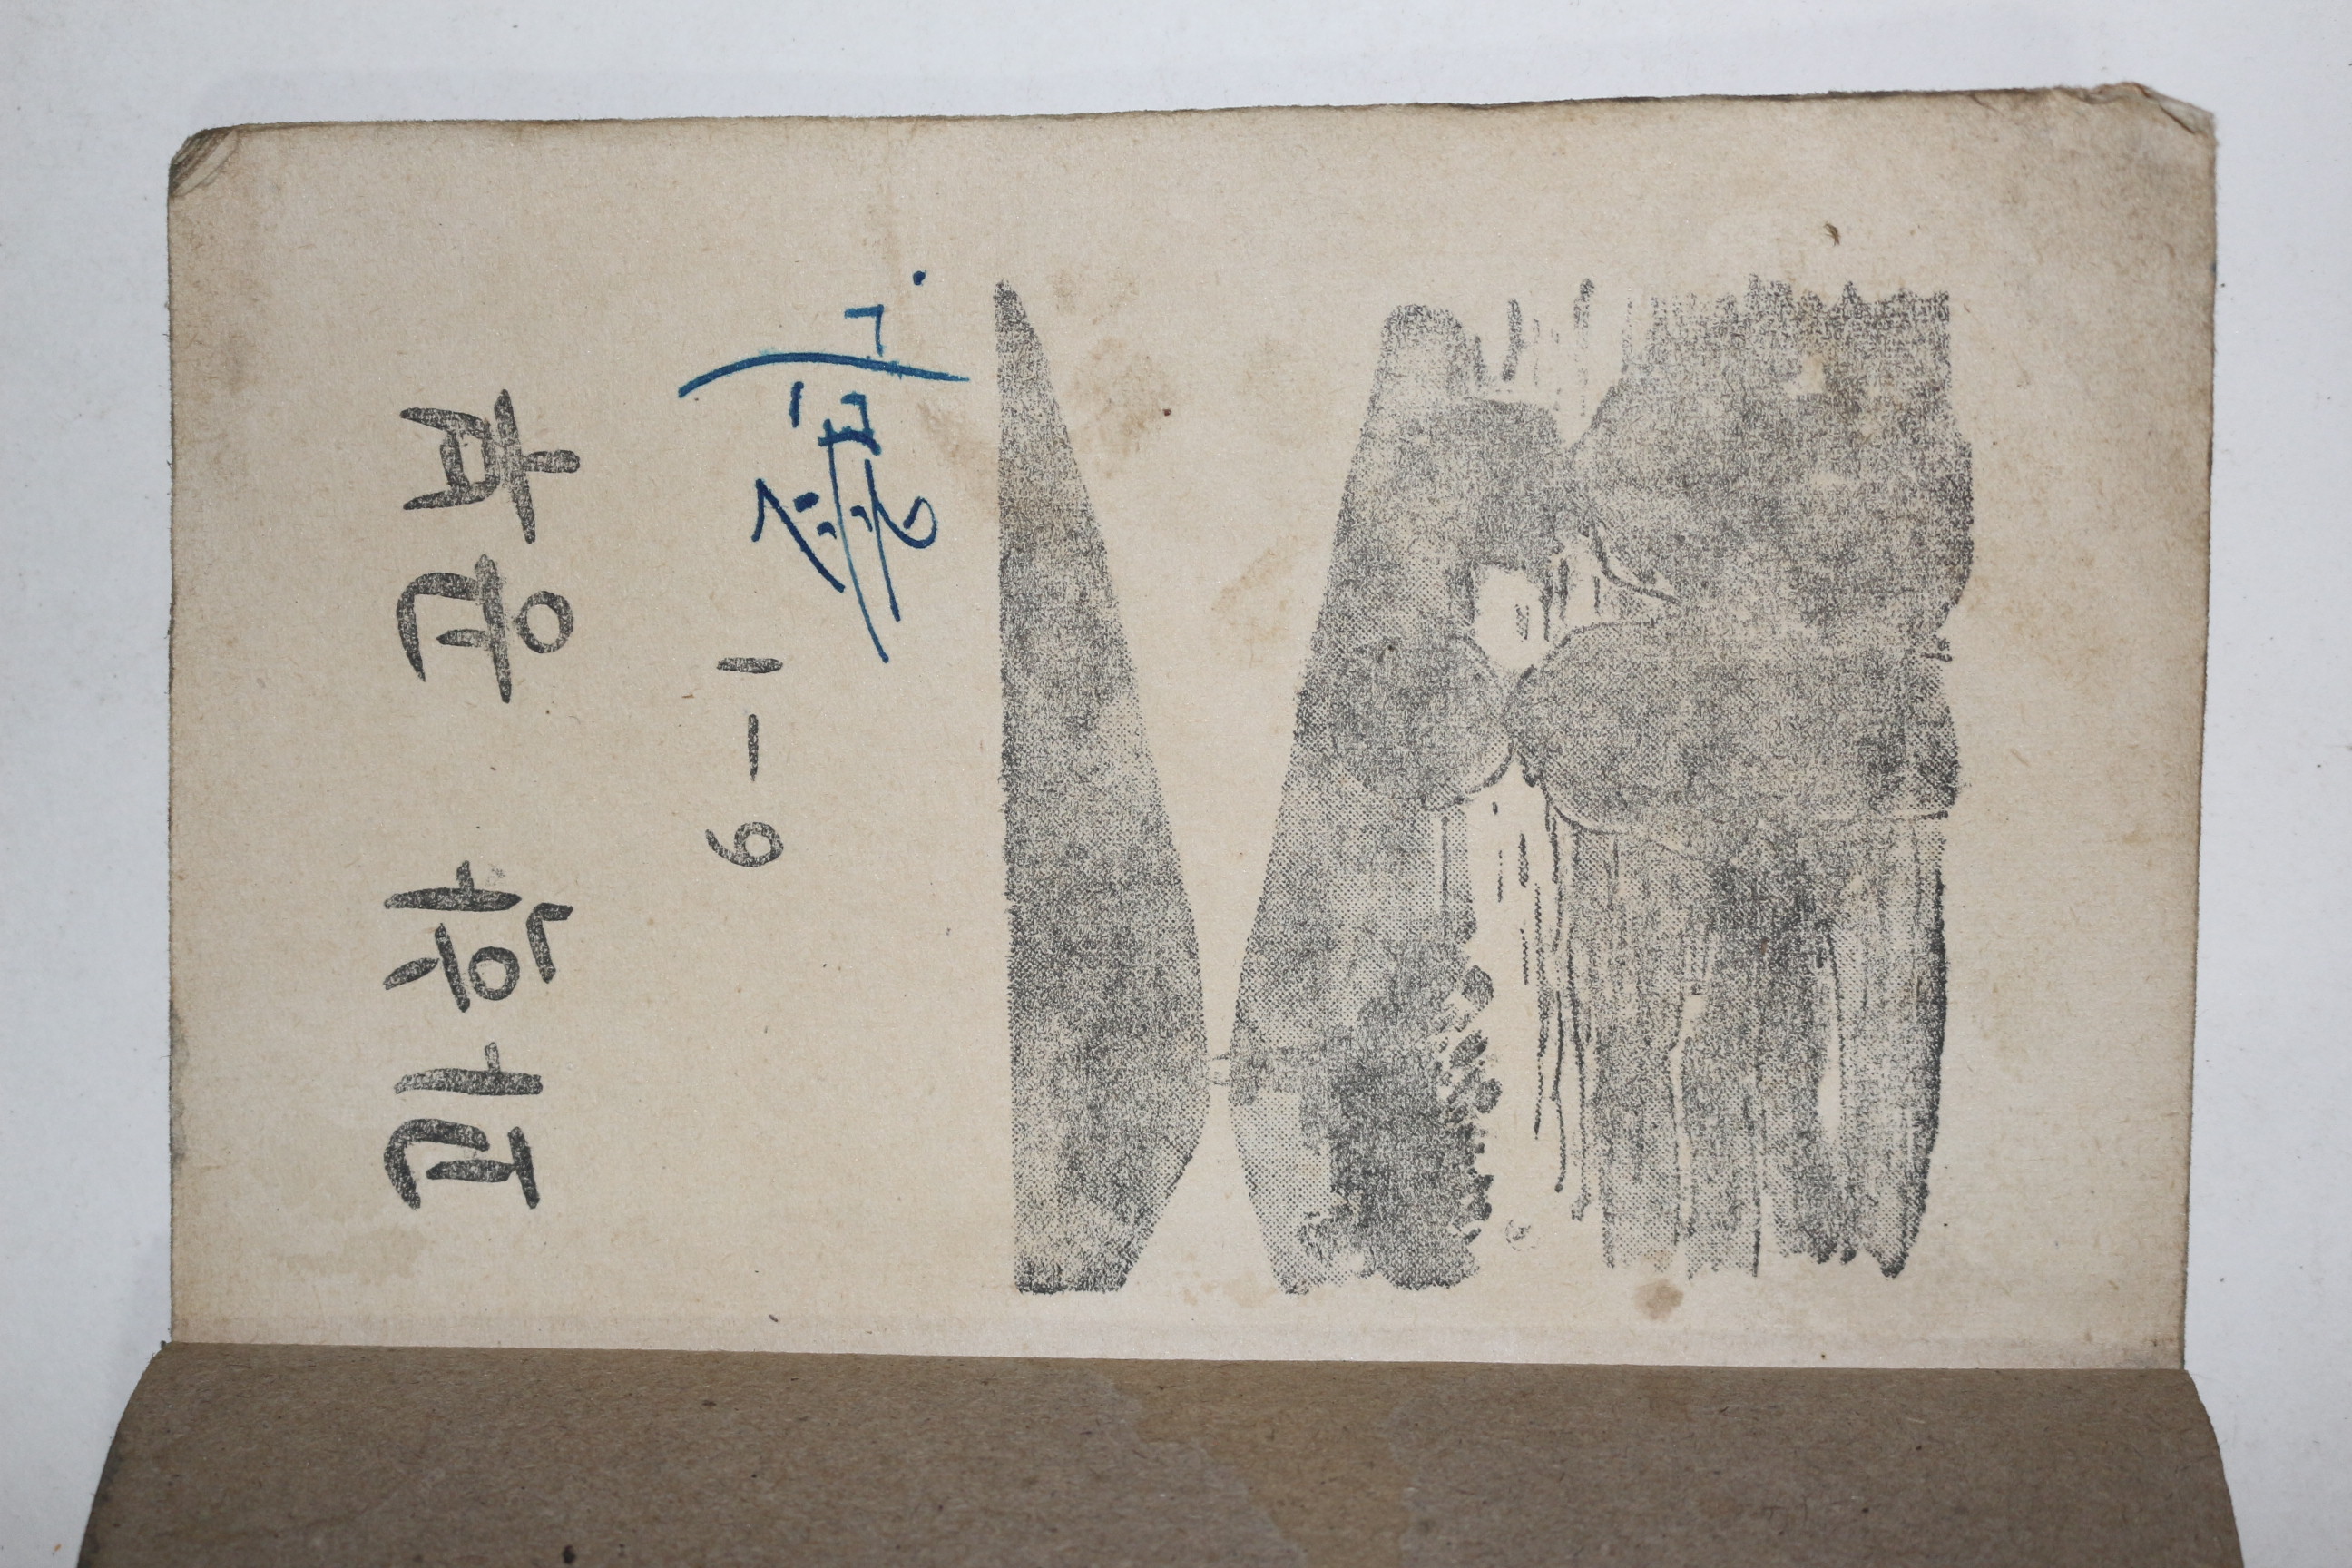 과학 공부
6-1